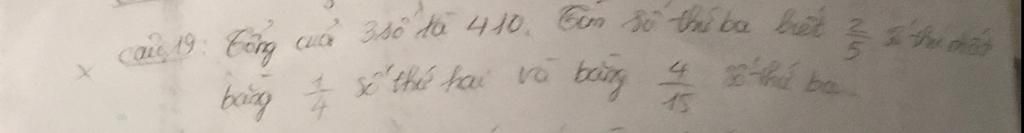 x câu 19: Tổng của 3 số là 410. Tìm số thứ ba biết 2/5 số thứ nhất
bằng 1/4 số thứ hai và bằng 4/15 số thứ ba